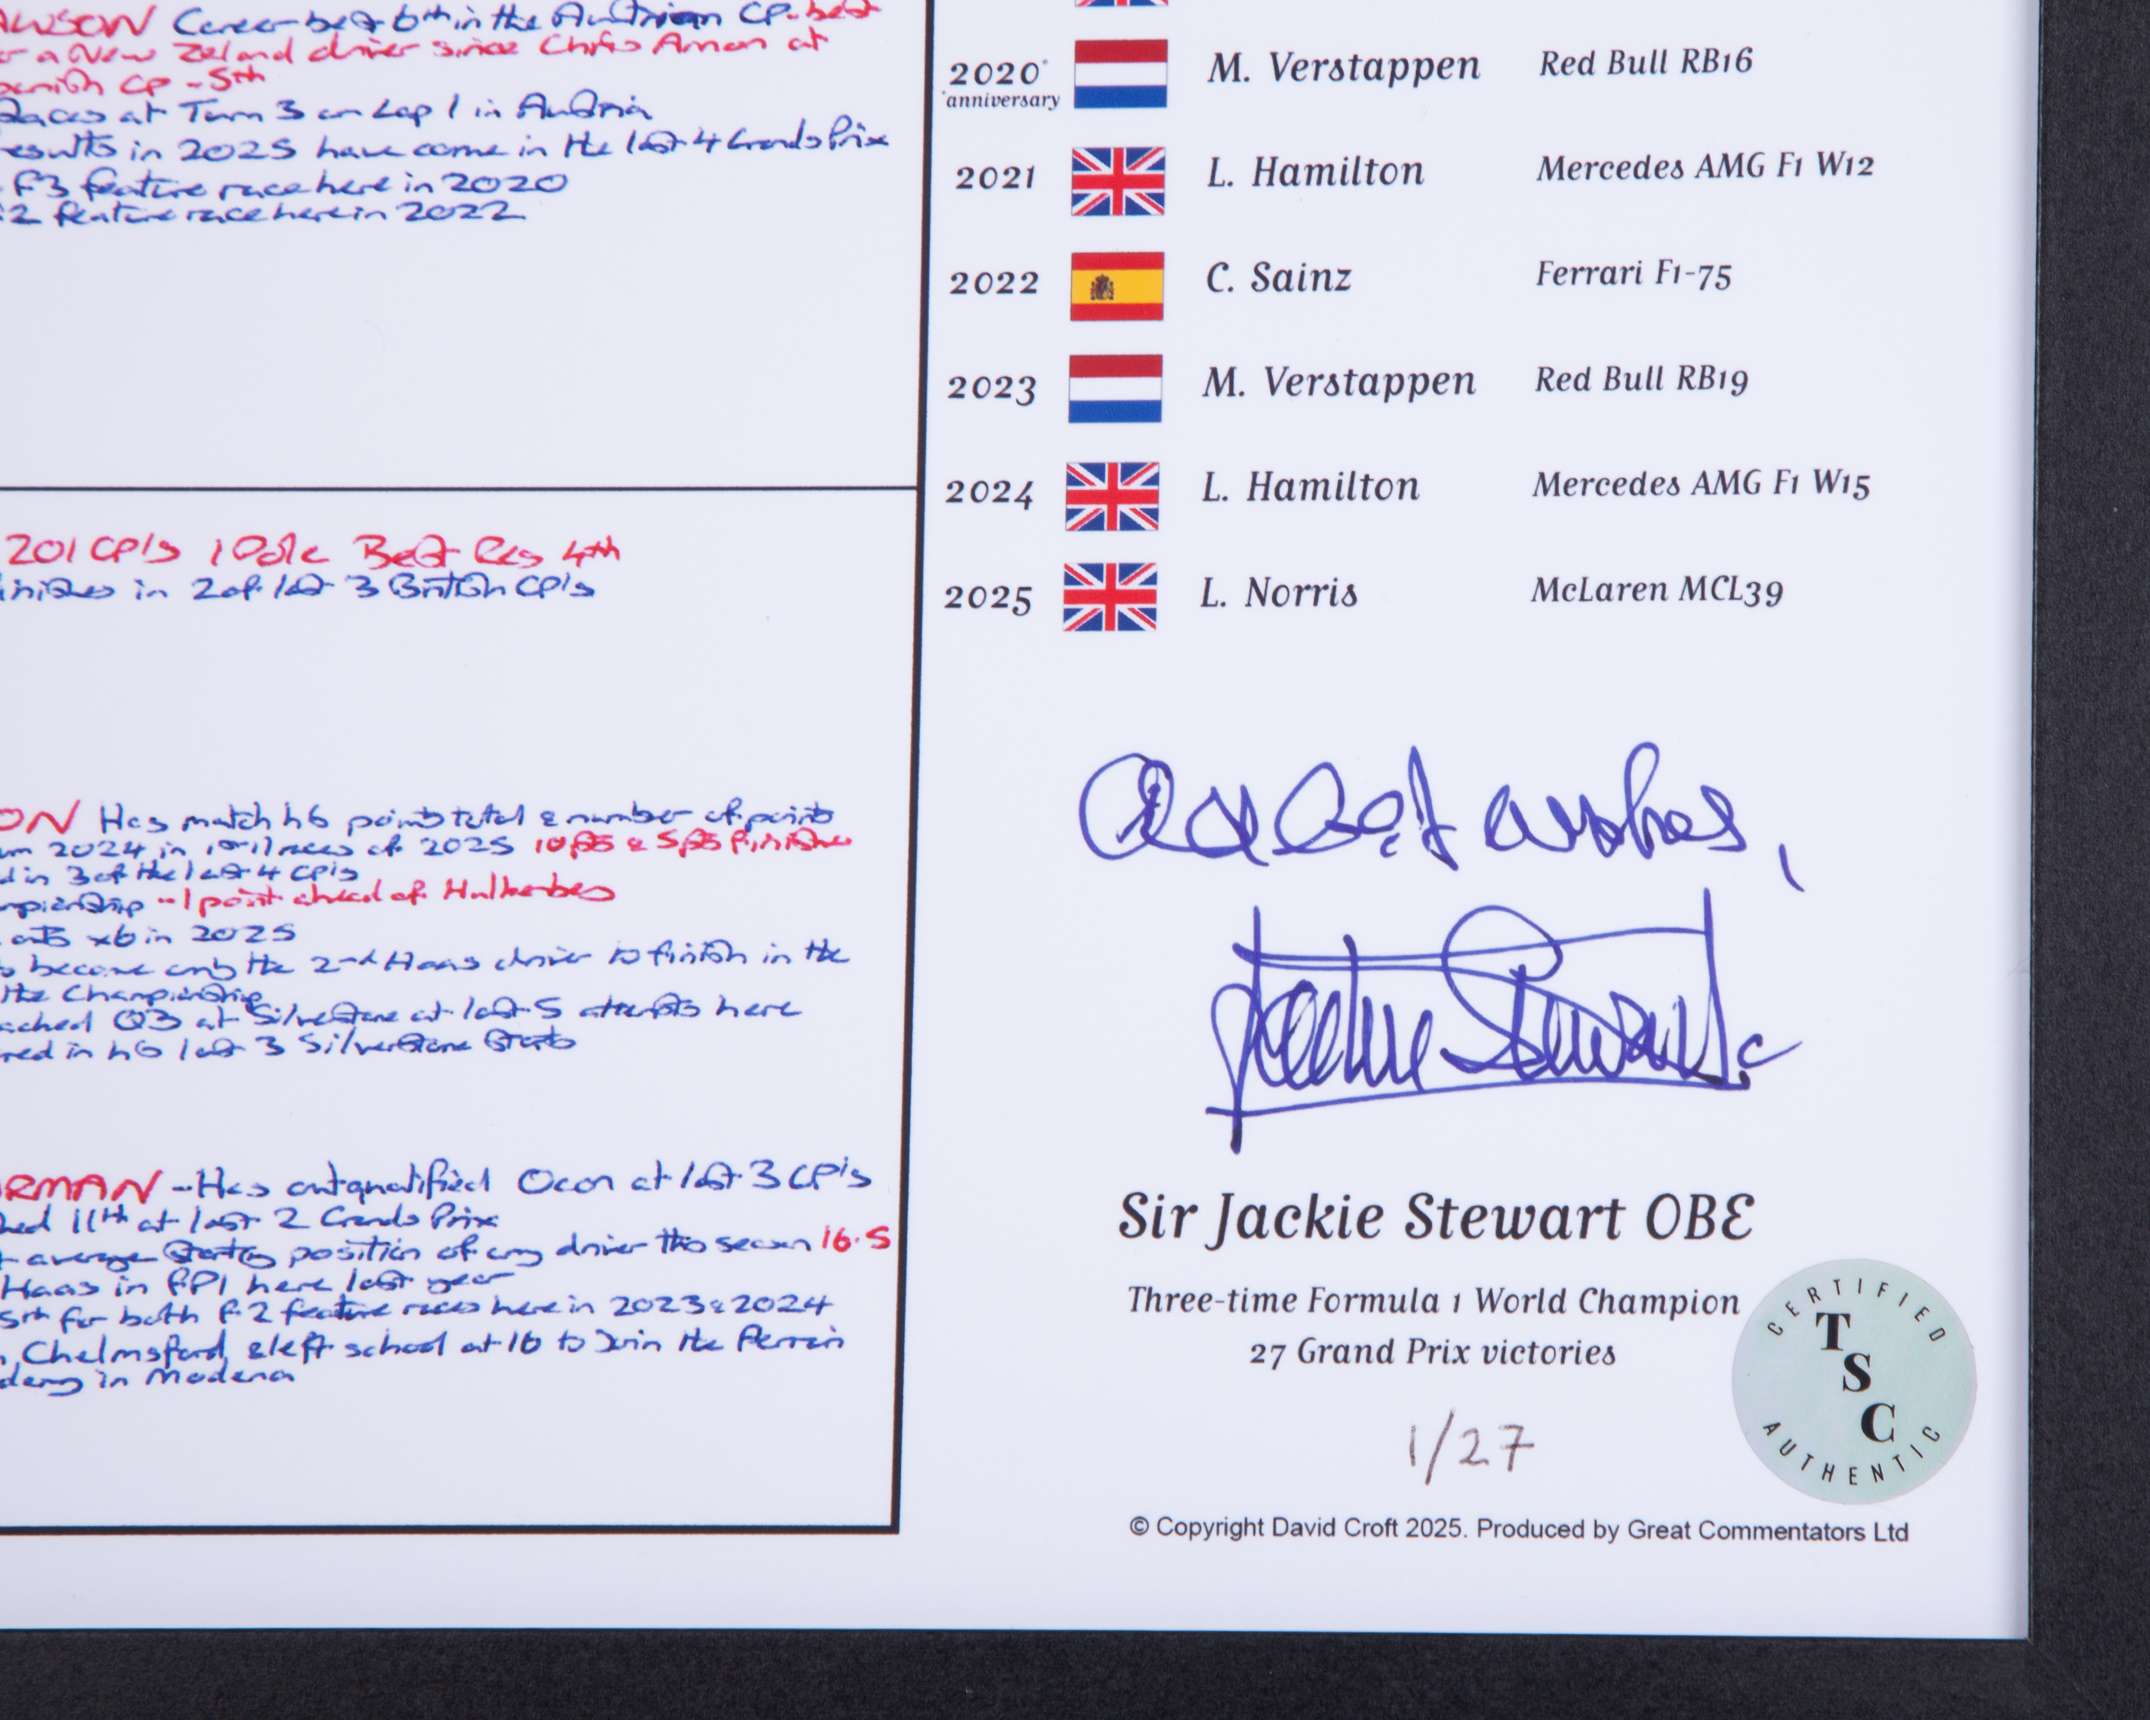 AWSON Career best 6th in the Austrian GP - best
a New Zeland driver since Chris Amon at
GP - 5th
Races at Turn 3 on Lap 1 in Austria
results in 2025 have come in the last 4 Grands Prix
F3 feature race here in 2020
2 feature race here in 2022
201 GP's 1 Pole Best Res 4th
in 2 of last 3 British GP's
ON Has match his points total & number of points
2024 in 1st 11 races of 2025 10pts & 5pts finishes
d in 3 of the last 4 GP's
mpionship - 1 point ahead of Hulkenberg
x6 in 2025
become only the 2nd Haas driver to finish in the
the Championship
ached Q3 at Silverstone at last 5 attempts here
red in his last 3 Silverstone Starts
RMAN - Has outqualified Ocon at last 3 GP's
hed 11th at last 2 Grands Prix
average starting position of any driver this season 16.5
Haas in FP1 here last year
5th for both F2 feature races here in 2023 & 2024
Chelmsford & left school at 16 to Join the Ferrari
demy in Modena
2020* M. Verstappen Red Bull RB16
*anniversary
2021 L. Hamilton Mercedes AMG F1 W12
2022 C. Sainz Ferrari F1-75
2023 M. Verstappen Red Bull RB19
2024 L. Hamilton Mercedes AMG F1 W15
2025 L. Norris McLaren MCL39
Best wishes,
Jackie Stewart.
Sir Jackie Stewart OBE
Three-time Formula 1 World Champion
27 Grand Prix victories
1/27
CERTIFIED
T
S
C
AUTHENTIC
© Copyright David Croft 2025. Produced by Great Commentators Ltd